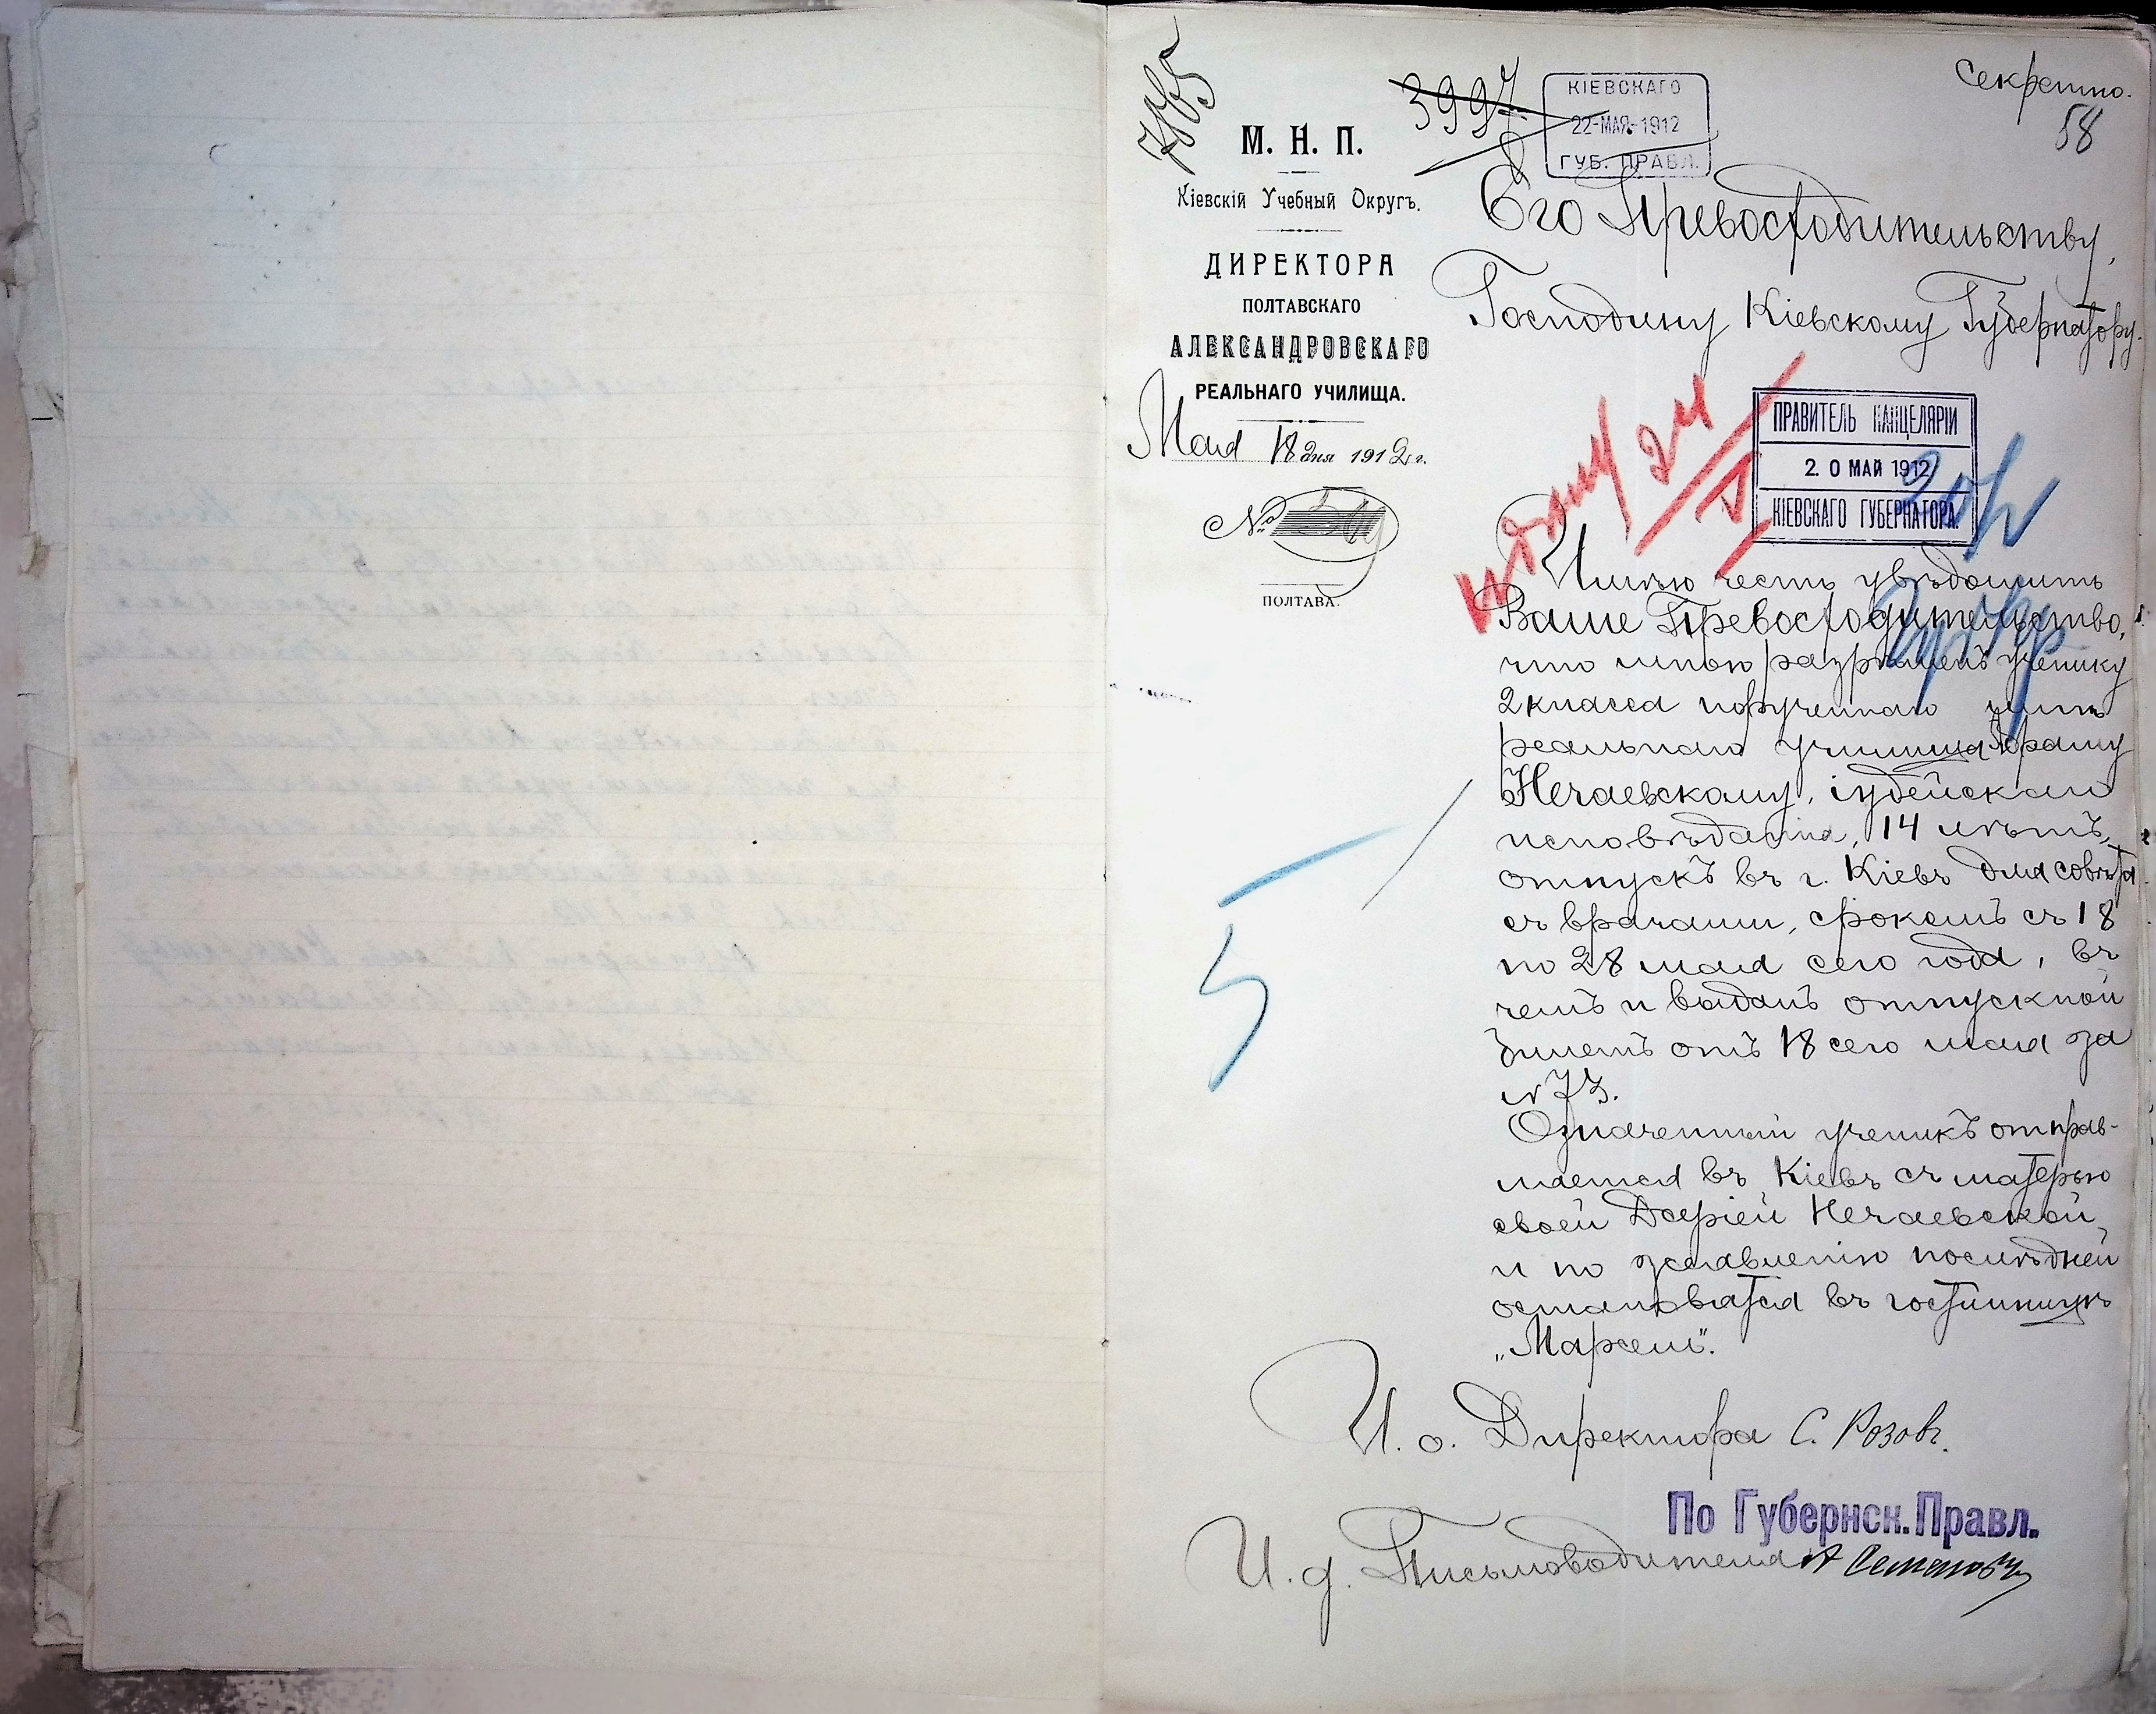 7865
3997
КІЕВСКАГО
22-МАЯ-1912
ГУБ. ПРАВЛ.
Секретно.
58
М. Н. П.
Кіевскій Учебный Округъ.
ДИРЕКТОРА
ПОЛТАВСКАГО
АЛЕКСАНДРОВСКАГО
РЕАЛЬНАГО УЧИЛИЩА.
Мая 18 дня 1912 г.
№
ПОЛТАВА.
Его Превосходительству,
Господину Кіевскому Губернатору.
ПРАВИТЕЛЬ КАНЦЕЛЯРІИ
2.0 МАЙ 1912
КІЕВСКАГО ГУБЕРНАТОРА.
24
V
Имѣю честь увѣдомить
Ваше Превосходительство,
что мною разрѣшенъ ученику
2 класса порученнаго мнѣ
реальнаго училища
Нечаевскому, іудейскаго
исповѣданія, 14 лѣтъ,
отпускъ въ г. Кіевъ для совѣта
съ врачами, срокомъ съ 18
по 28 мая сего года, въ
чемъ и выданъ отпускной
билетъ отъ 18 сего мая за
№ 73.
Означенный ученикъ отправ-
ляется въ Кіевъ съ матерью
своей Нечаевской,
и по заявленію послѣдней
остановятся въ гостинницѣ
„Марсель".
5
И. о. Директора С. Розовъ.
По Губернск. Правл.
И. д. Письмоводителя А Семеновъ